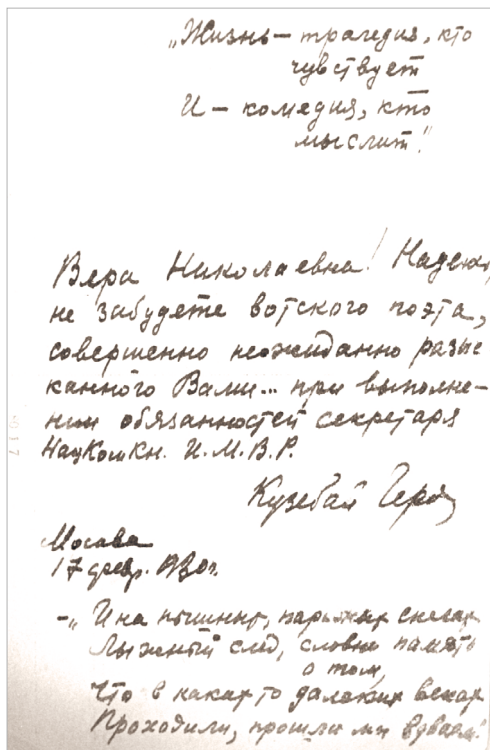 „Жизнь – трагедия, кто
чувствует
И – комедия, кто
мыслит".
Вера Николаевна! Надеюсь,
не забудете вотского поэта,
совершенно неожиданно разыс
канного Вами... при выполне-
нии обязанностей секретаря
НацКомКн. И.М.В.Р.
Кузебай Герд
Москва
17 февр. 1930г.
–„ И на пышных, рыжих снегах
Лыжный след, словно память
о том,
Что в каких то далёких веках
Проходили, прошли мы вдвоём."